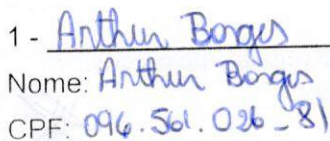 1 - Arthur Borges
Nome: Arthur Borges
CPF: 096.561.026-81